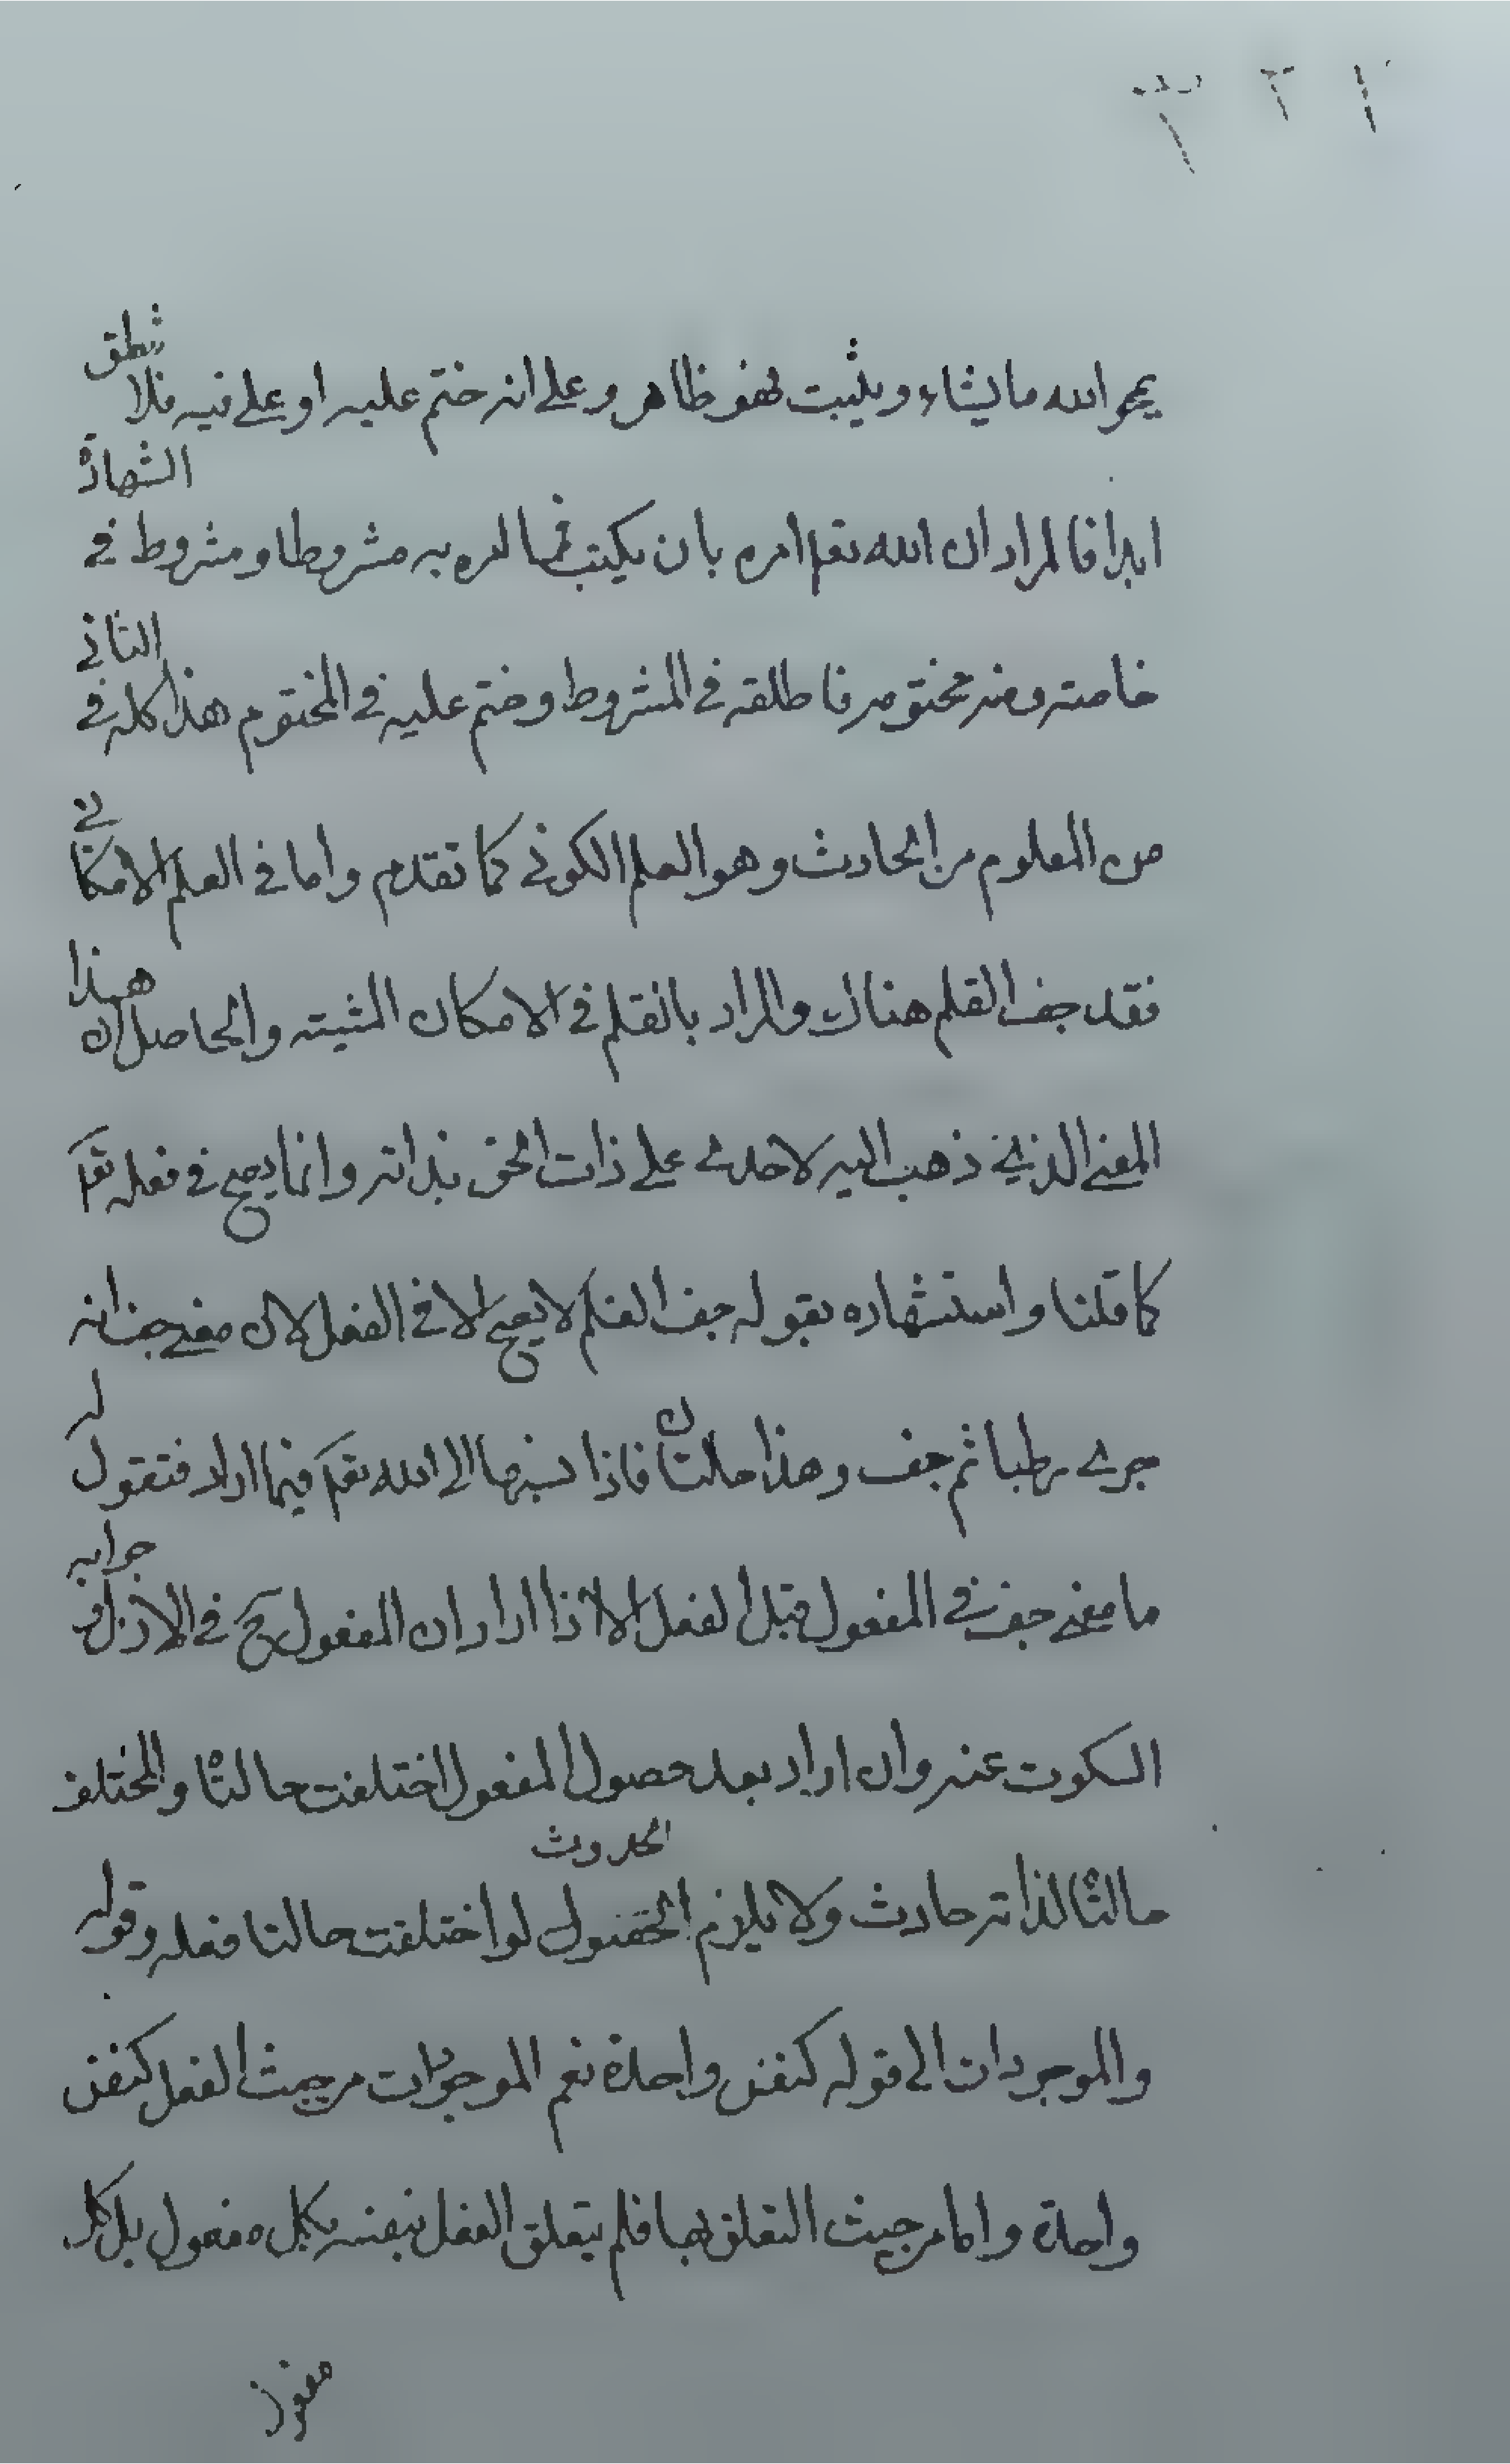 يمحو الله ما يشاء ويثبت فهو ظاهر وعلى انه ختم عليه او على فيه فلا ينطق
ابدا فالمراد ان الله تعالى امره بان يكتب فيما امره به مشروطا ومشروط في الشهادة
خاصته ومنه مختوم فاطلقه في المشروط وختم عليه في المختوم هذا كله في الثاني
من المعلوم من الحادث وهو العلم الكوني كما تقدم واما في العلم الامكاني
فقد جف القلم هناك والمراد بالقلم في الامكان المشية والحاصل ان هذا
المعنى الذي ذهب اليه لاحدى على ذات الحق بذاته وانما يصح في فعله تعالى
كما قلنا واستشهاده بقوله جف القلم لا يصح الا في الفعل لان معنى جف انه
جرى رطبا ثم جف وهذا حالتان فاذا نسبتها الى الله تعالى فيما اراد فتقول له
ما معنى جف في المفعول قبل الفعل الا اذا اراد ان المفعول ح في الازل وجوابه
السكوت عنه وان اراد بعد حصول المفعول اختلفت حالتاه والمختلف
حالتاه لذاته حادث ولا يلزم الحدوث لو اختلفت حالتا فعله وقوله
والموجودات الى قوله كنفس واحدة نعم الموجودات من حيث الفعل كنفس
واحدة واما من حيث التعلق بها فلم يتعلق الفعل بنفسه بكل مفعول بل كل